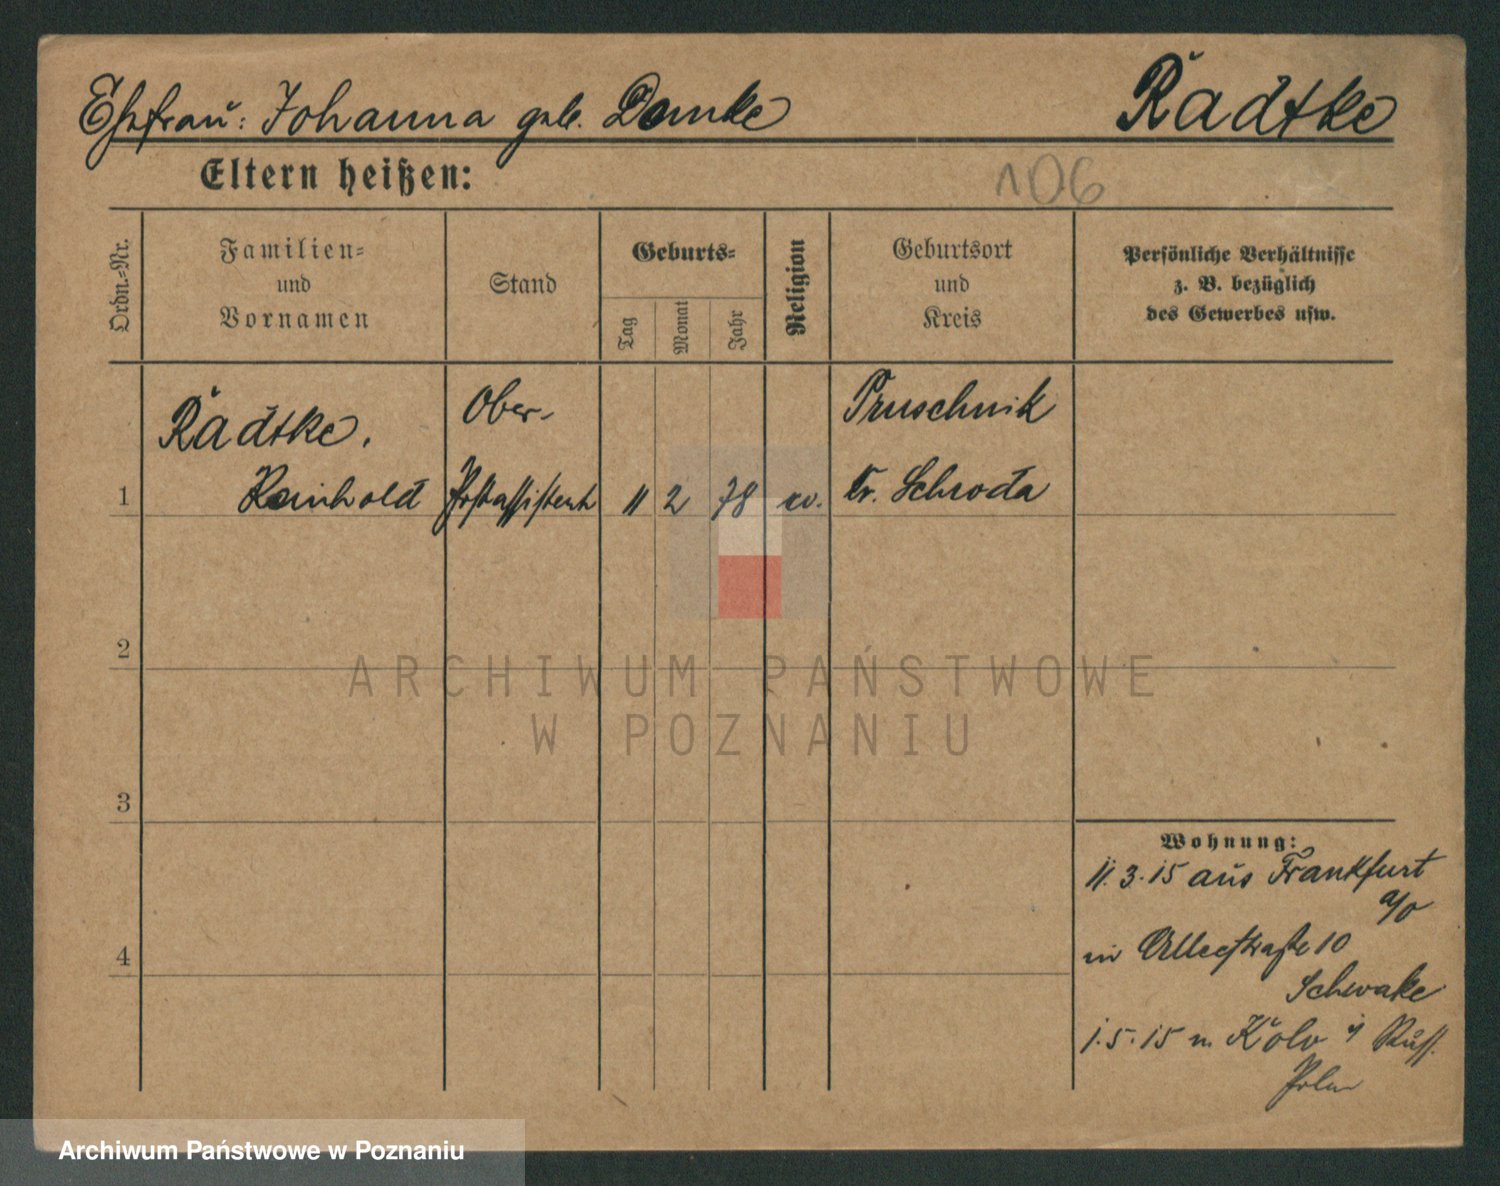 Ehefrau: Johanna geb. Domke
Radtke
Eltern heißen:
106
Ordn.-Nr.
Familien-
und
Vornamen
Stand
Geburts-
Tag
Monat
Jahr
Religion
Geburtsort
und
Kreis
Persönliche Verhältnisse
z. B. bezüglich
des Gewerbes usw.
1
Radtke,
Reinhold
Ober-
Postassistent
11
2
78
ev.
Pruschnik
Kr. Schroda
2
3
4
Wohnung:
11.3.15 aus Frankfurt
a/O
in Alleestraße 10
Schwake
1.5.15 n. Kolo i/ Russ.
Polen
ARCHIWUM PAŃSTWOWE
W POZNANIU
Archiwum Państwowe w Poznaniu